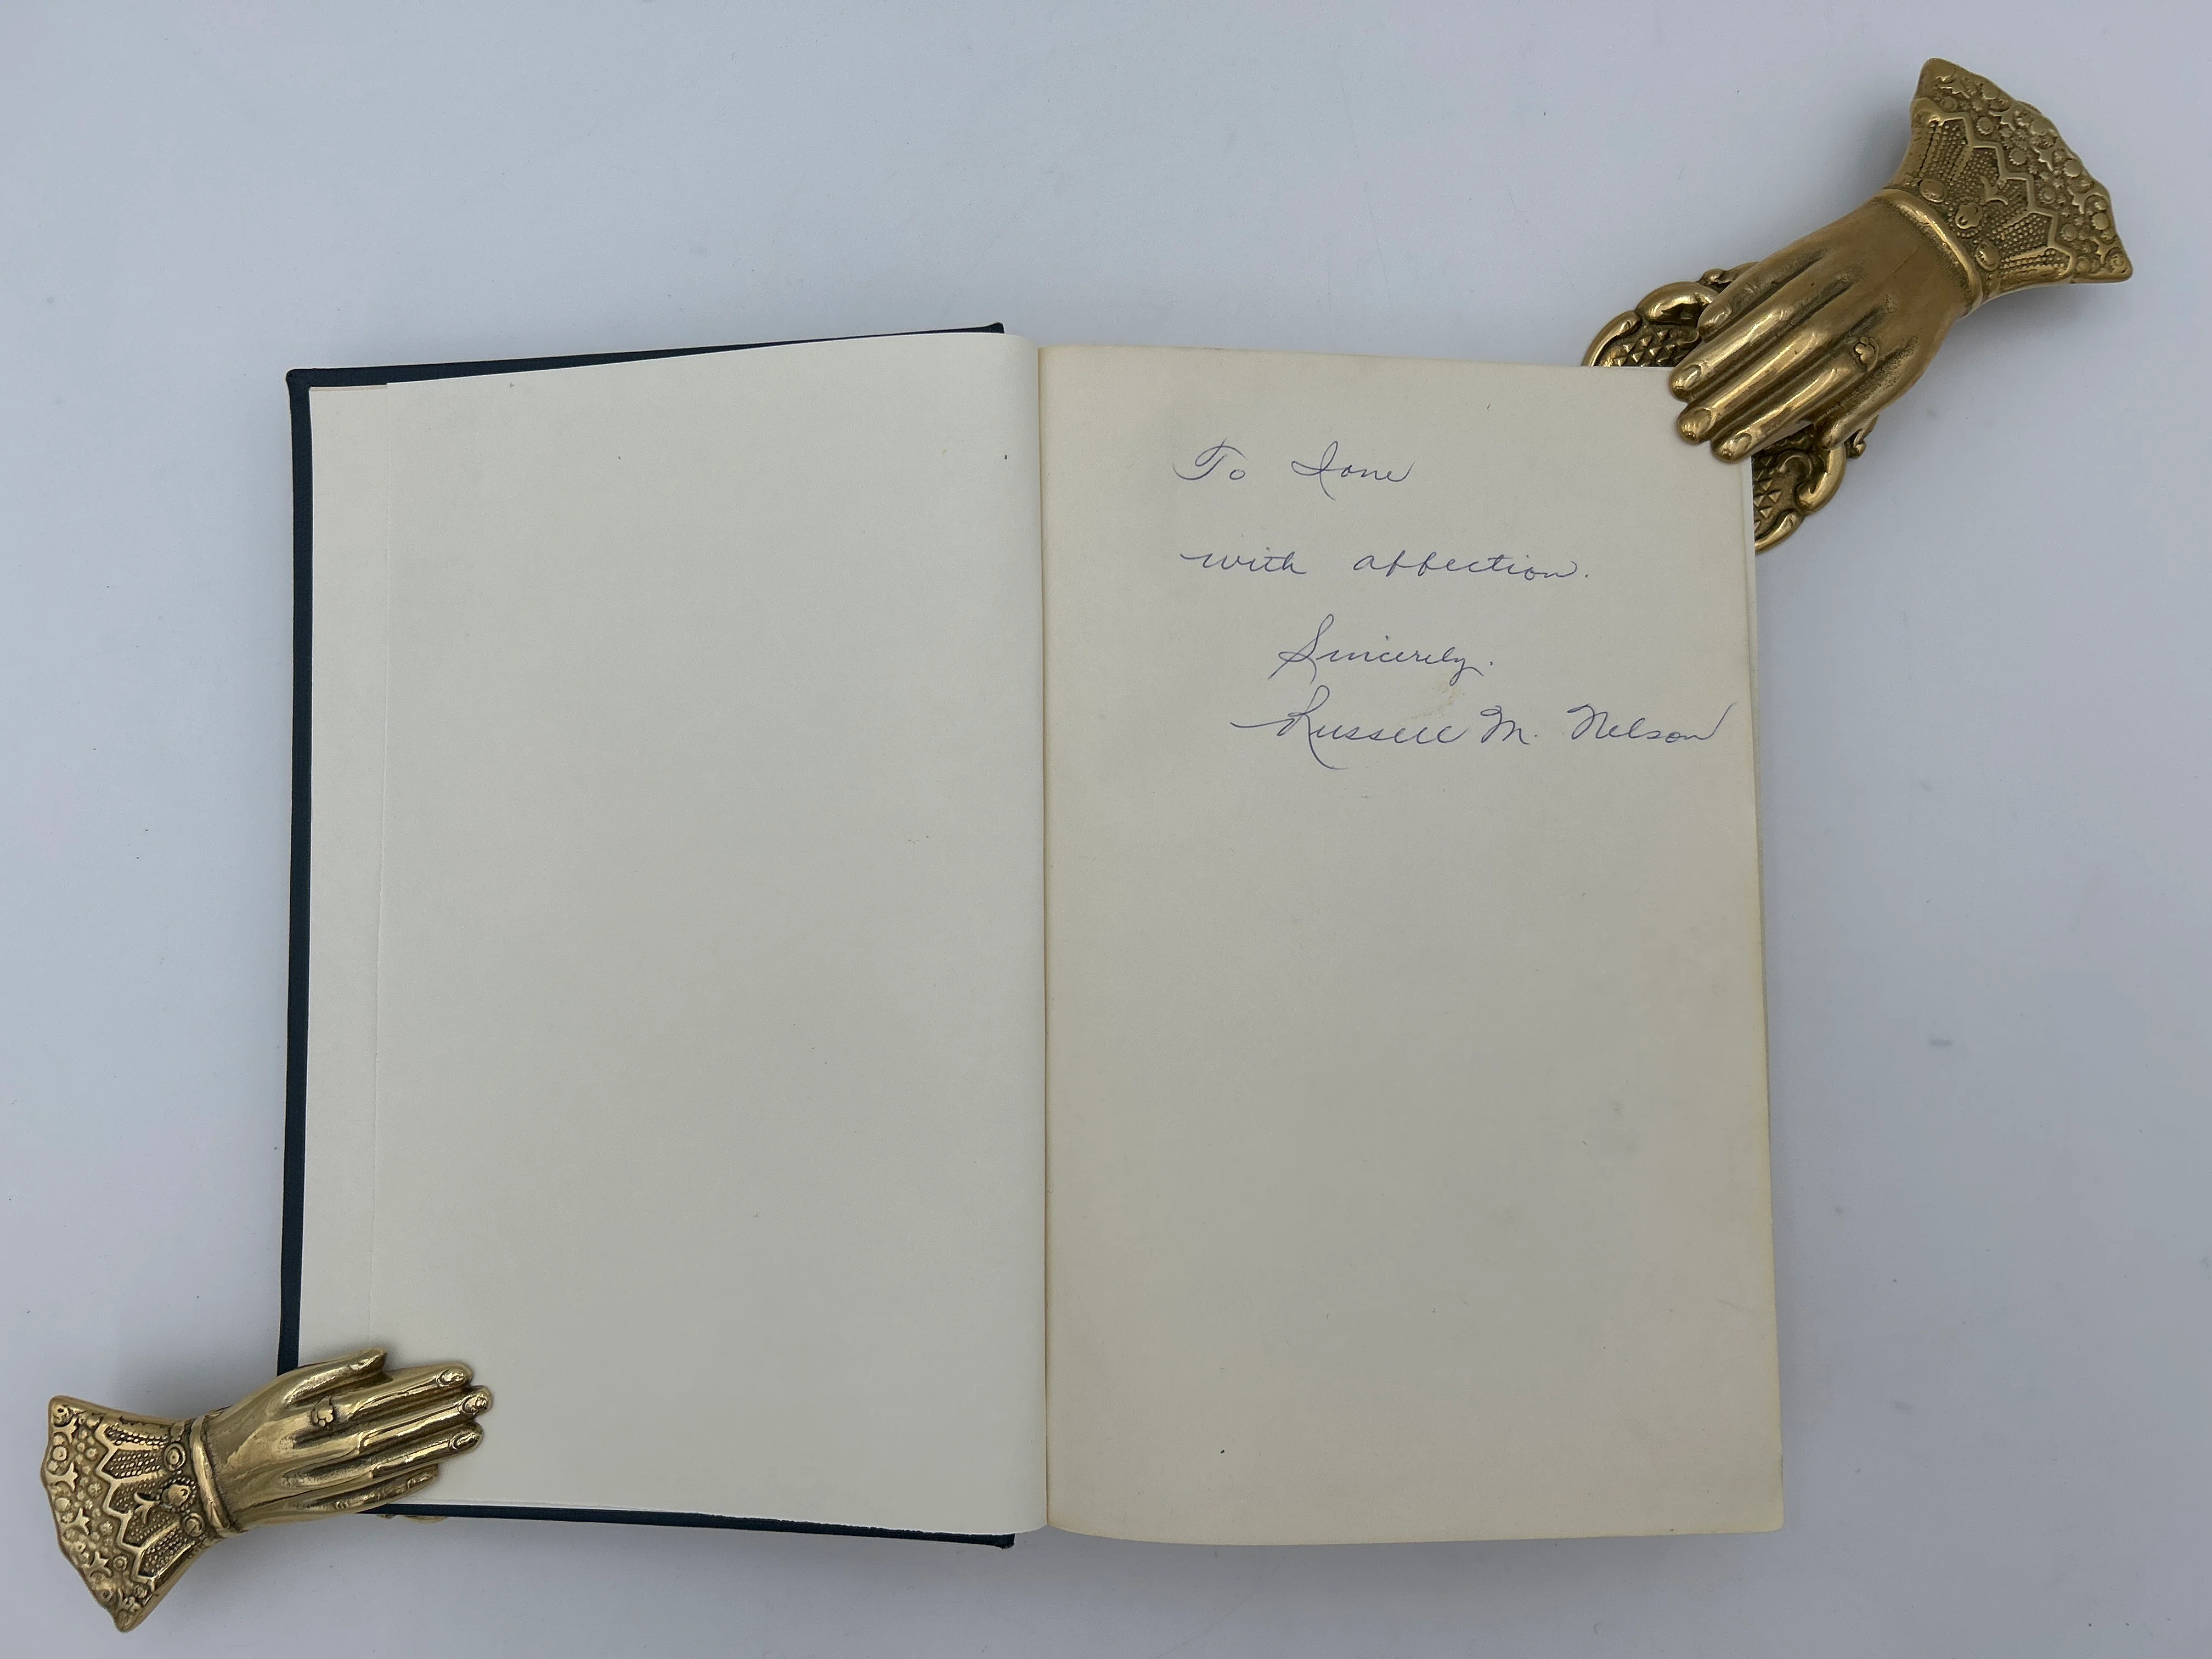 To Ione
with affection.
Sincerely.
Russell M. Nelson